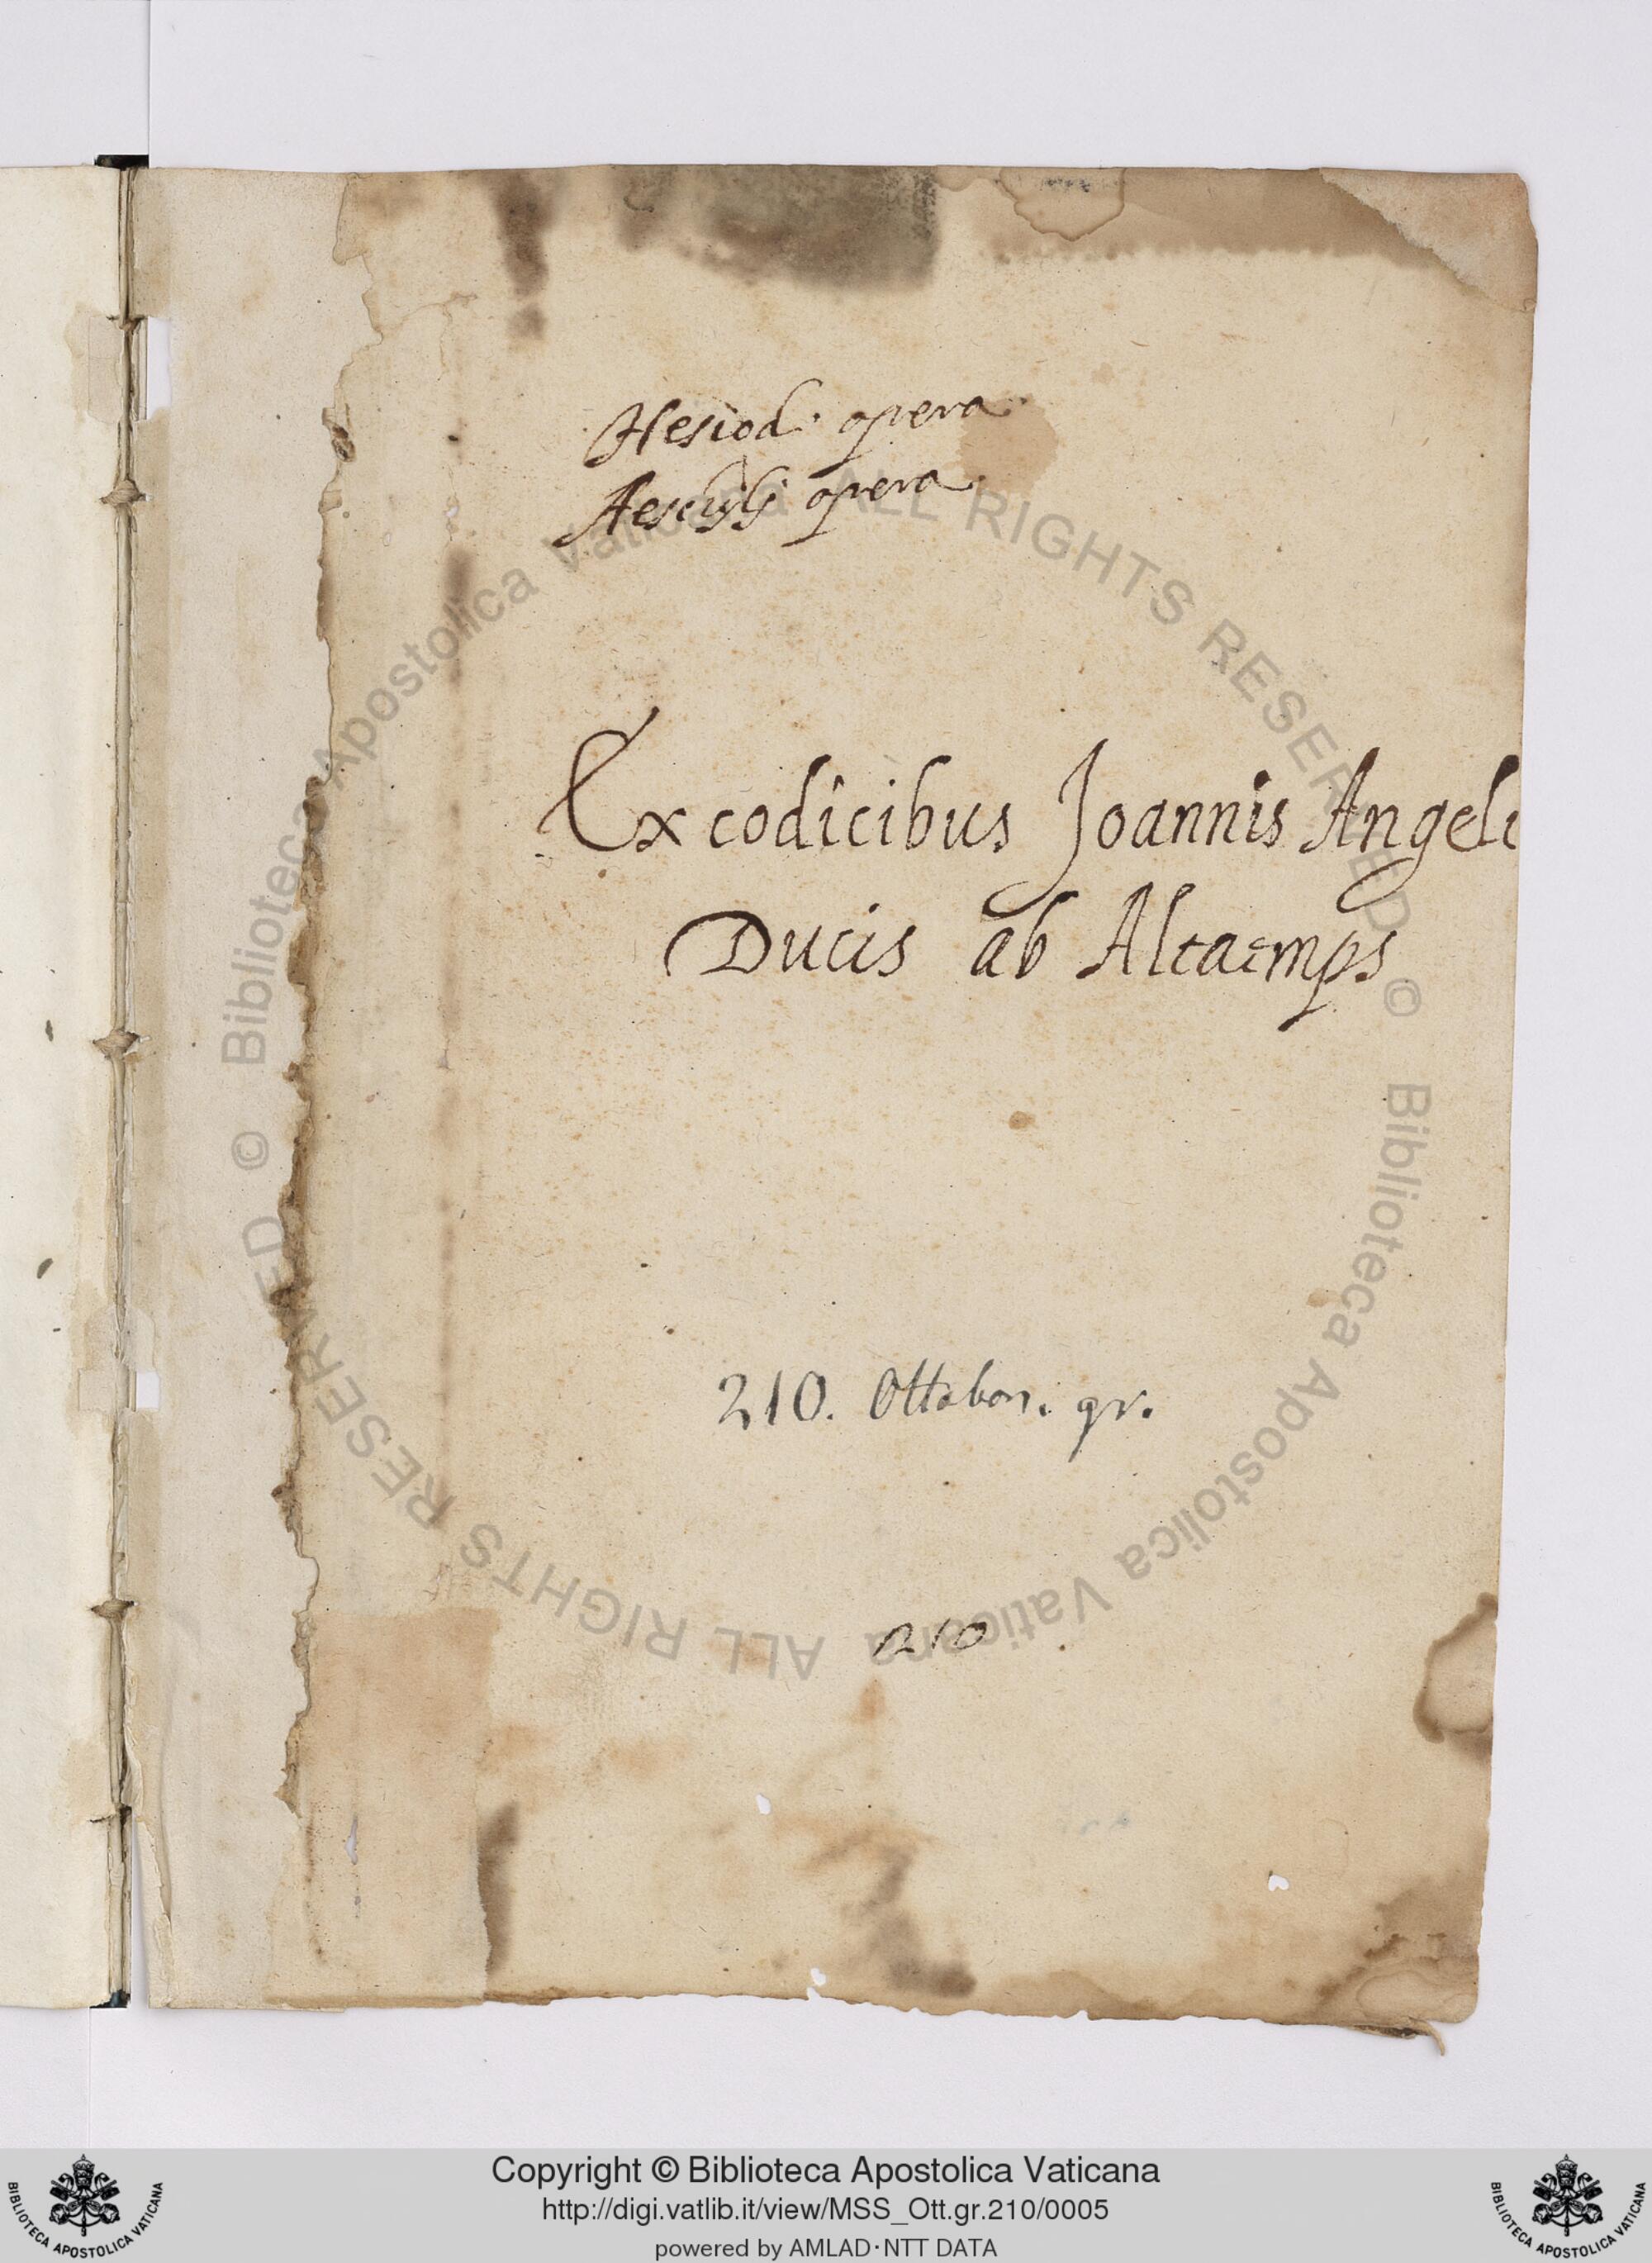 Hesiod. opera
Aeschyli opera
Ex codicibus Joannis Angeli
Ducis ab Altaemps
210. Ottobon. gr.
210
© Biblioteca Apostolica Vaticana ALL RIGHTS RESERVED © Biblioteca Apostolica Vaticana ALL RIGHTS RESERVED
Copyright © Biblioteca Apostolica Vaticana
http://digi.vatlib.it/view/MSS_Ott.gr.210/0005
powered by AMLAD·NTT DATA
BIBLIOTECA APOSTOLICA VATICANA
BIBLIOTECA APOSTOLICA VATICANA